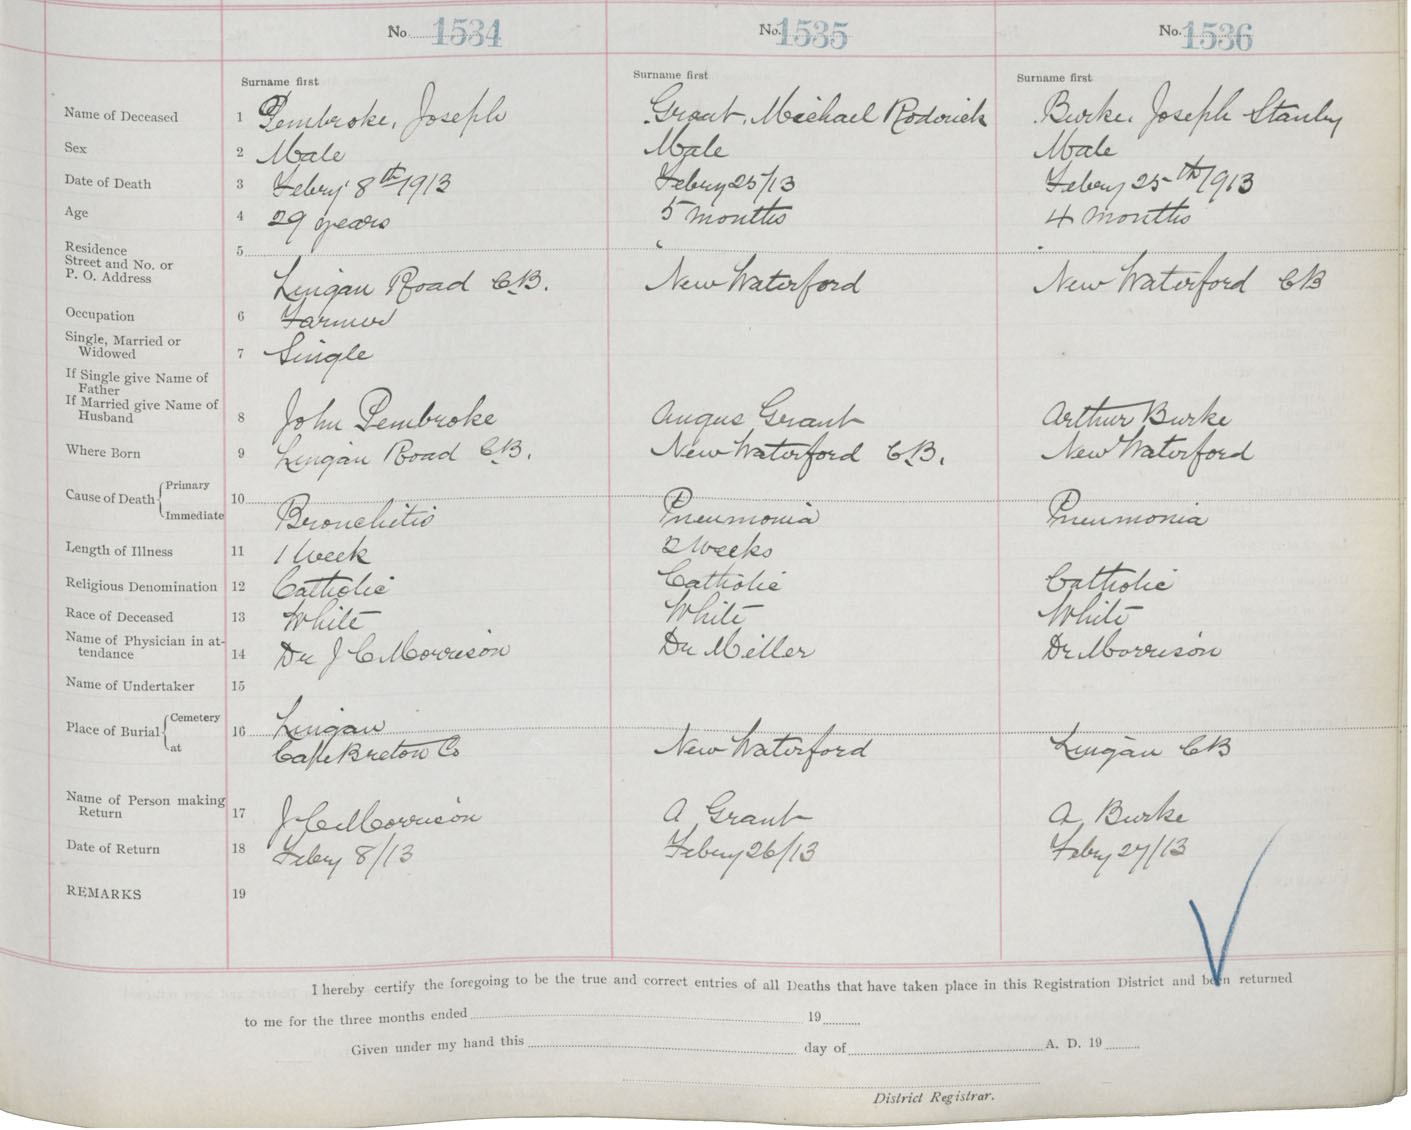 No. 1534 No. 1535 No. 1536
Surname first Surname first Surname first
Name of Deceased 1 Pembroke, Joseph Grant, Michael Roderick Burke, Joseph Stanley
Sex 2 Male Male Male
Date of Death 3 Febry 8th 1913 Febry 25/13 Febry 25th 1913
Age 4 29 years 5 months 4 months
Residence
Street and No. or
P. O. Address 5 Lingan Road C.B. New Waterford New Waterford CB
Occupation 6 Farmer
Single, Married or
Widowed 7 Single
If Single give Name of
Father
If Married give Name of
Husband 8 John Pembroke Angus Grant Arthur Burke
Where Born 9 Lingan Road C.B. New Waterford C.B. New Waterford
Cause of Death Primary
Immediate 10 Bronchitis Pneumonia Pneumonia
Length of Illness 11 1 Week 2 Weeks
Religious Denomination 12 Catholic Catholic Catholic
Race of Deceased 13 White White White
Name of Physician in at-
tendance 14 Dr J C Morrison Dr Miller Dr Morrison
Name of Undertaker 15
Place of Burial Cemetery 16 Lingan
at Cape Breton Co New Waterford Lingan CB
Name of Person making
Return 17 J C Morrison A Grant A Burke
Date of Return 18 Febry 8/13 Febry 26/13 Febry 27/13
REMARKS 19
I hereby certify the foregoing to be the true and correct entries of all Deaths that have taken place in this Registration District and been returned
to me for the three months ended 19
Given under my hand this day of A. D. 19
District Registrar.